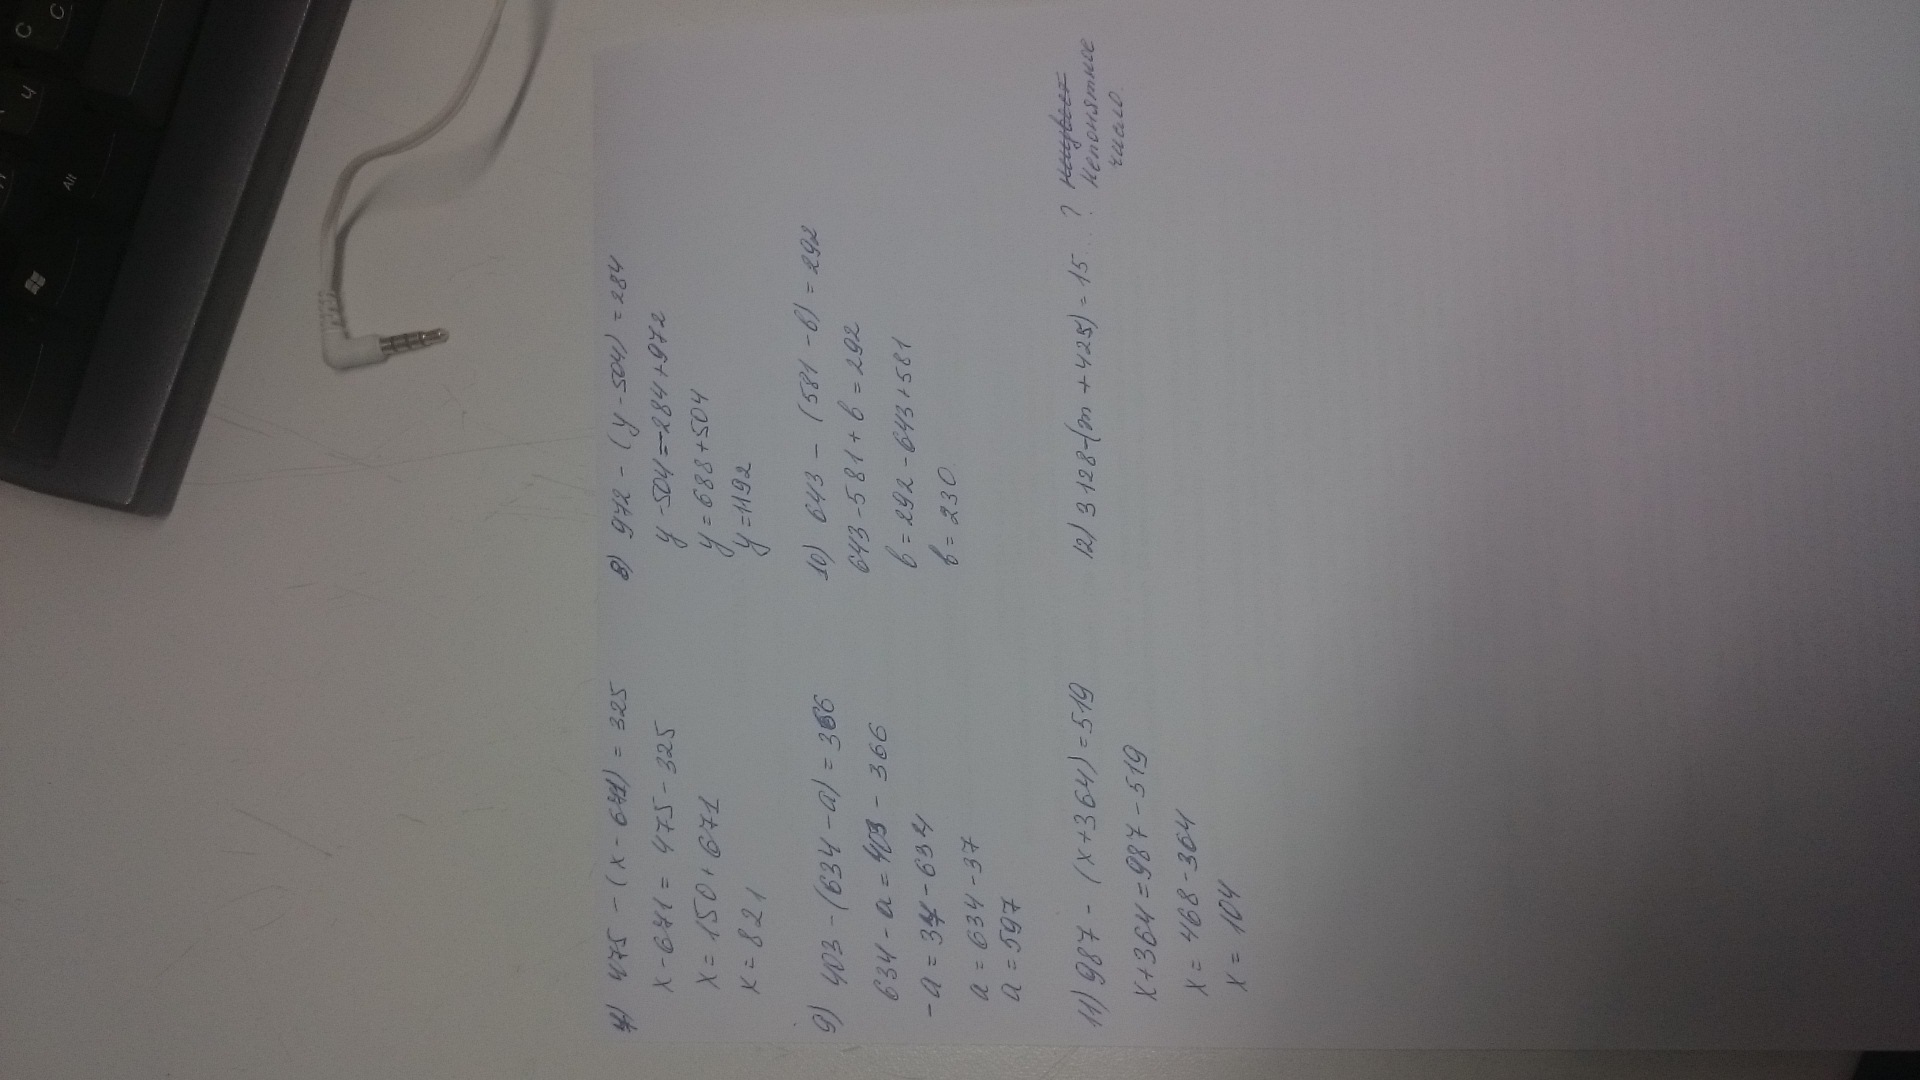 7) 475 - (x - 671) = 325
x - 671 = 475 - 325
x = 150 + 671
x = 821
8) 972 - (y - 504) = 284
y - 504 = -284 + 972
y = 688 + 504
y = 1192
9) 403 - (634 - a) = 366
634 - a = 403 - 366
-a = 37 - 634
a = 634 - 37
a = 597
10) 643 - (581 - в) = 292
643 - 581 + в = 292
в = 292 - 643 + 581
в = 230
11) 987 - (x + 364) = 519
x + 364 = 987 - 519
x = 468 - 364
x = 104
12) 3128 - (m + 425) = 15 ... ?
непонятное
число.
Alt
Ч
С
C